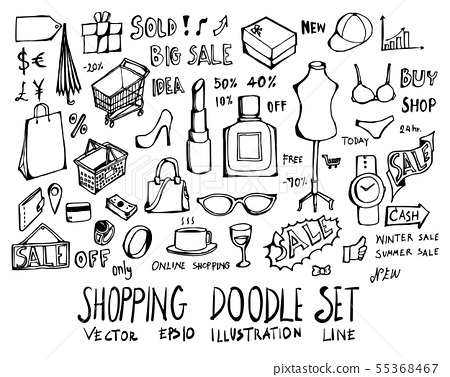 SOLD!
NEW
BIG SALE
$ €
£ ¥
-20%
IDEA
50% 40%
10% OFF
BUY
SHOP
%
24 hr.
TODAY
SALE
FREE
-70%
CASH
SALE
OFF
only
ONLINE SHOPPING
SALE
WINTER SALE
SUMMER SALE
NEW
SHOPPING DOODLE SET
VECTOR EPS10 ILLUSTRATION LINE
55368467